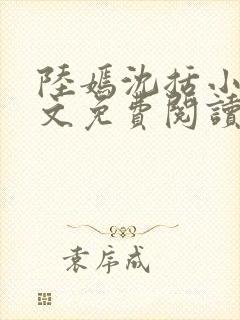 陸嫣沈括小
文免費閱讀
袁序成